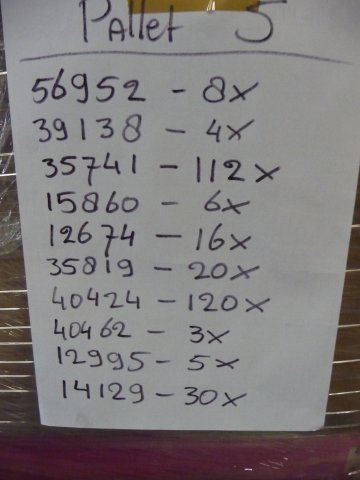 Pallet 5
56952 - 8x
39138 - 4x
35741 - 112x
15860 - 6x
12674 - 16x
35819 - 20x
40424 - 120x
40462 - 3x
12995 - 5x
14129 - 30x